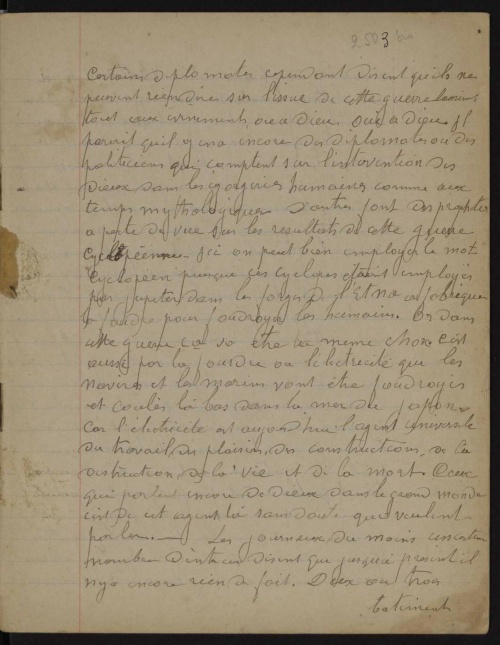 2503 bis
Certains diplomates cependant disent qu'ils ne
peuvent rien dire sur l'issue de cette guerre laissant
tout aux evenements ou a dieu. Oui a dieu Il
parait qu'il y en a encore des diplomates ou des
politiciens qui comptent sur l'intervention des
Dieux dans les humaines comme aux
temps mythologiques D'autres font des propheties
a perte de vue sur les resultats de cette guerre
cyclopéenne. Ici on peut bien employer le mot
Cyclopéen puisque ces cyclopes etaient employés
par Jupiter dans les forges de l'Etna a fabriquer
la foudre pour foudroyer les humains. Or dans
cette guerre ca va être la meme chose c'est
aussi par la foudre ou l'electricité que les
navires et les marins vont être foudroyés
et coulés là bas dans la mer du japon
Car l'électricité est aujourd'hui l'agent universel
du travail, des plaisirs, des constructions, de la
destruction, de la vie et de la mort. Ceux
qui parlent encore de Dieux dans le grand monde
c'est de cet agent là sans doute qu'ils veulent
parler. — Les journeaux du moins un certain
nombre d'entre eux disent que jusqu'à présent il
n'y a encore rien de fait. Deux ou trois
batiments